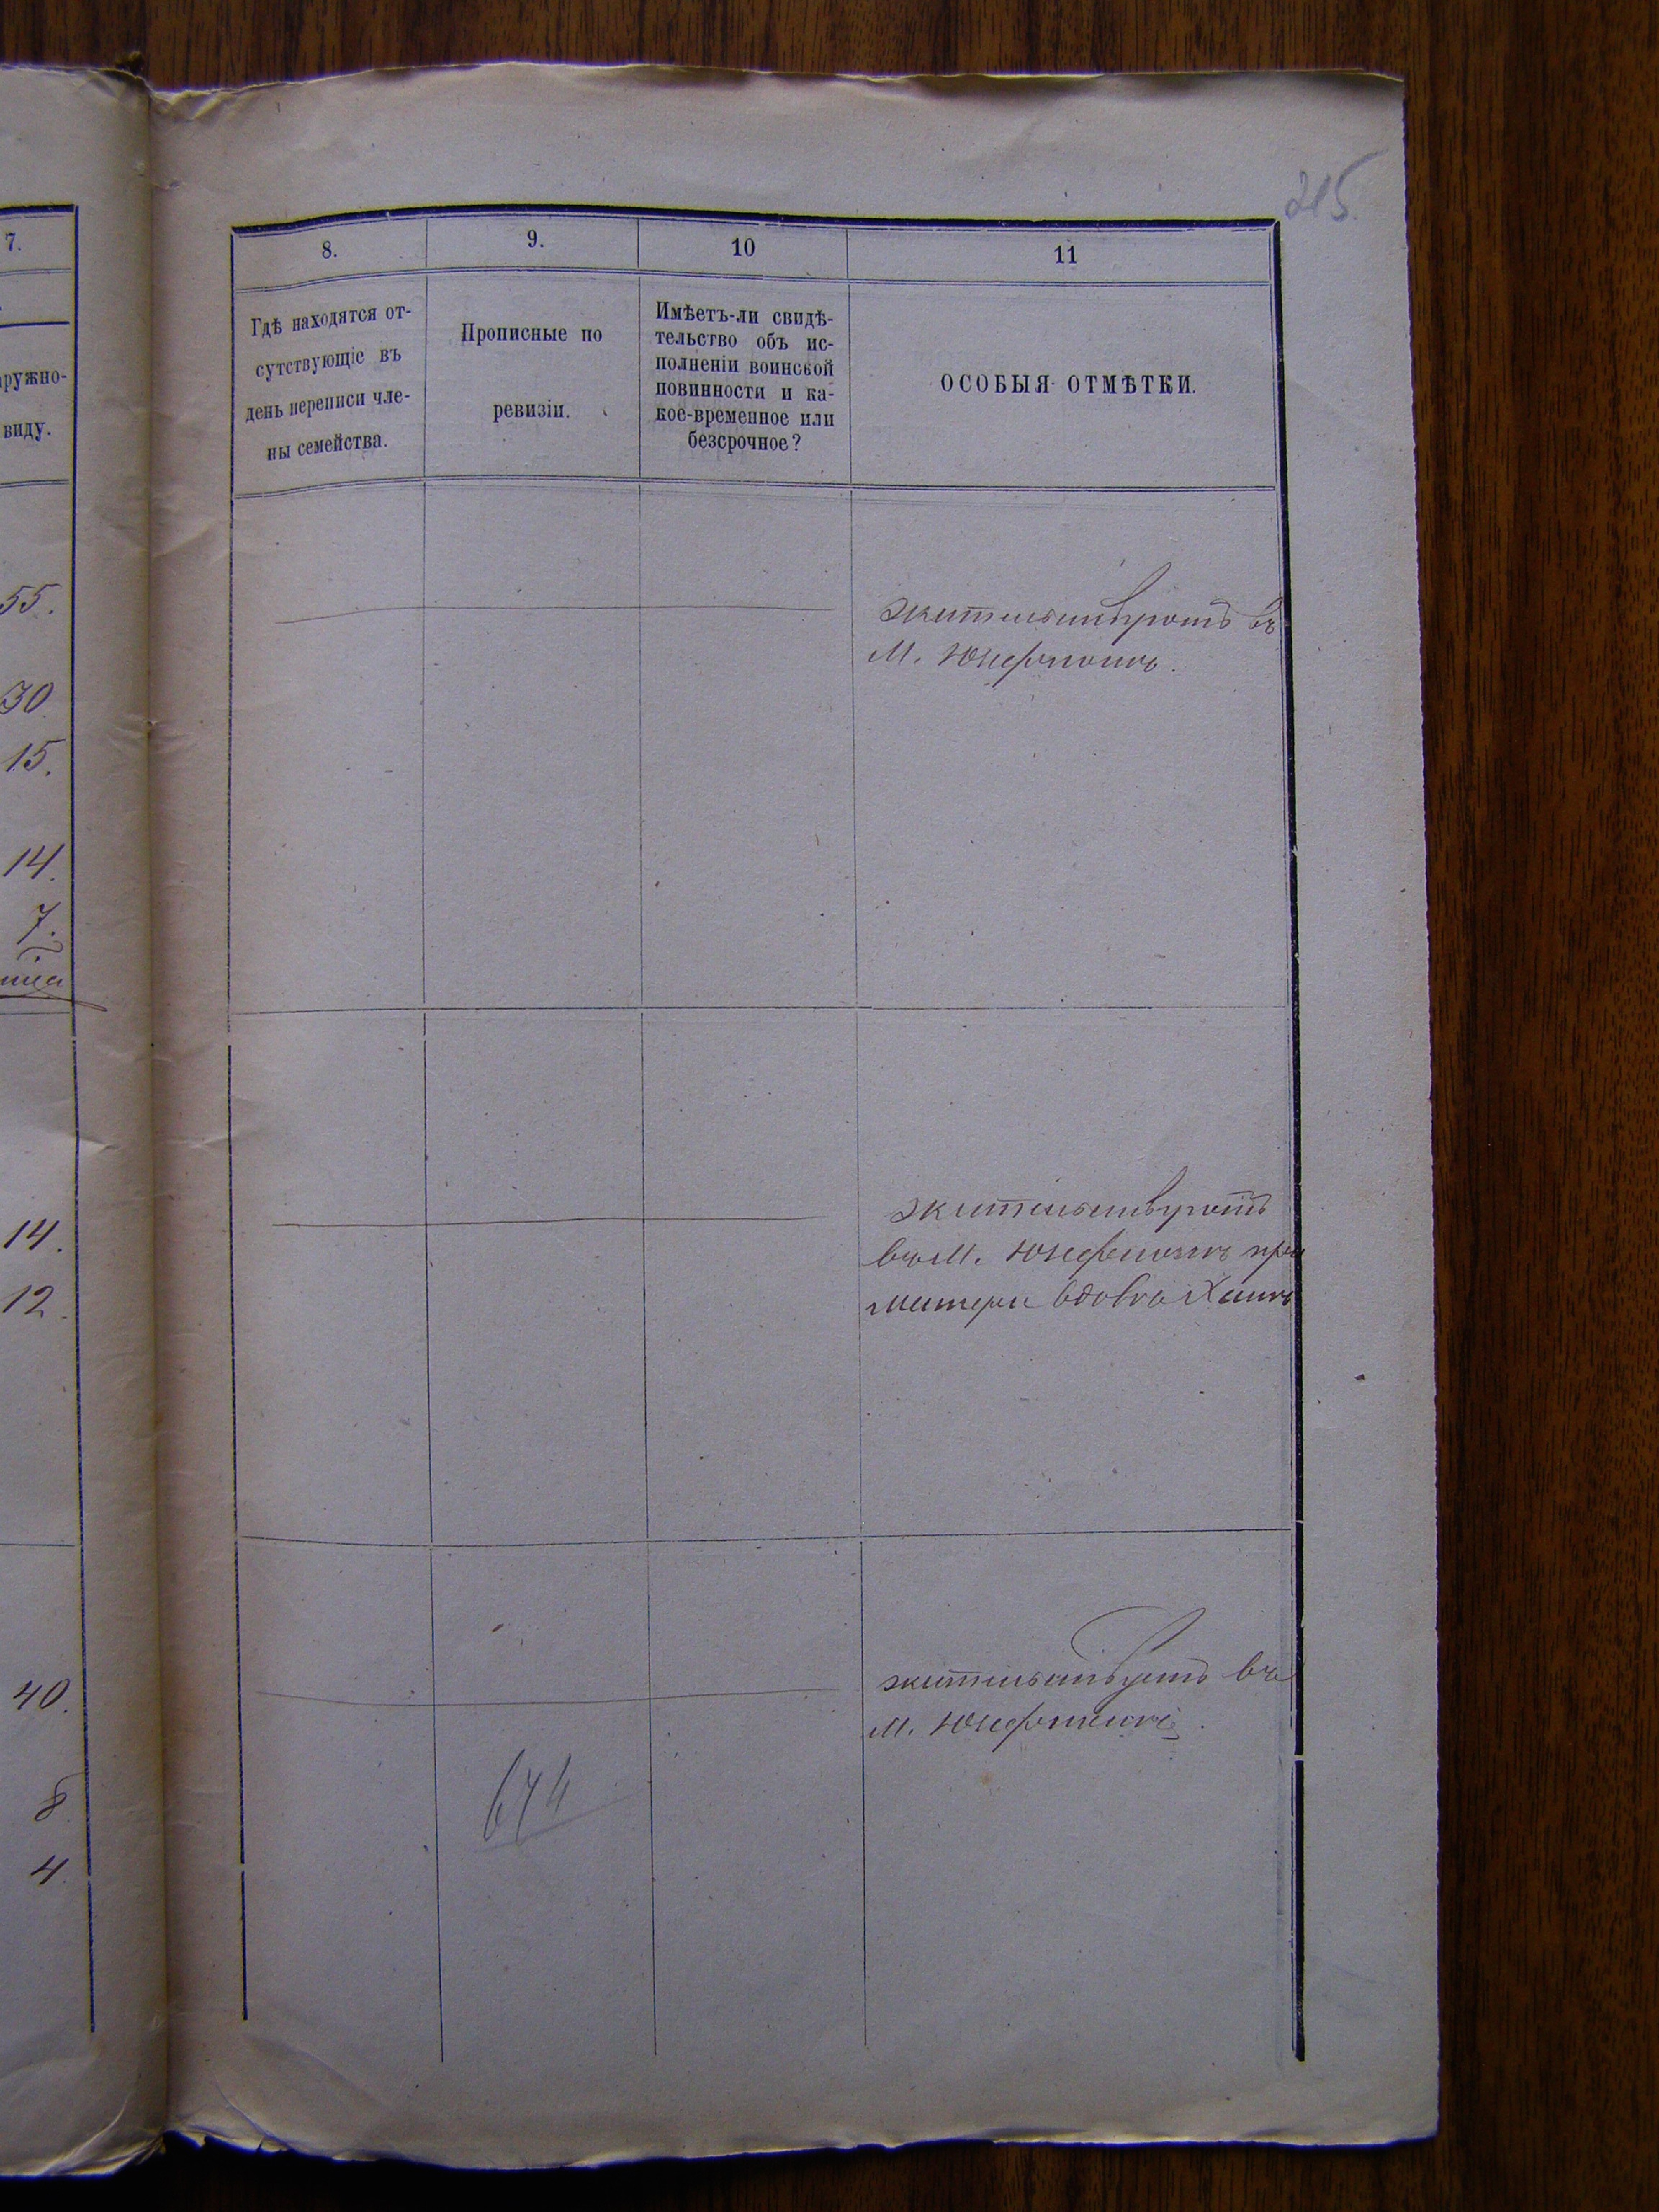 215.
7.
8.
9.
10
11
Гдѣ находятся от-
сутствующіе въ
день переписи чле-
ны семейства.
Прописные по
ревизіи.
Имѣетъ-ли свидѣ-
тельство объ ис-
полненіи воинской
повинности и ка-
кое-временное или
безсрочное?
ОСОБЫЯ ОТМѢТКИ.
аружно-
виду.
55.
30
15.
14.
7.
жительствуютъ въ
М.
14.
12.
жительствуютъ
въ М. при
матери вдовѣ
40.
8
4.
жительствуетъ въ
М.
674